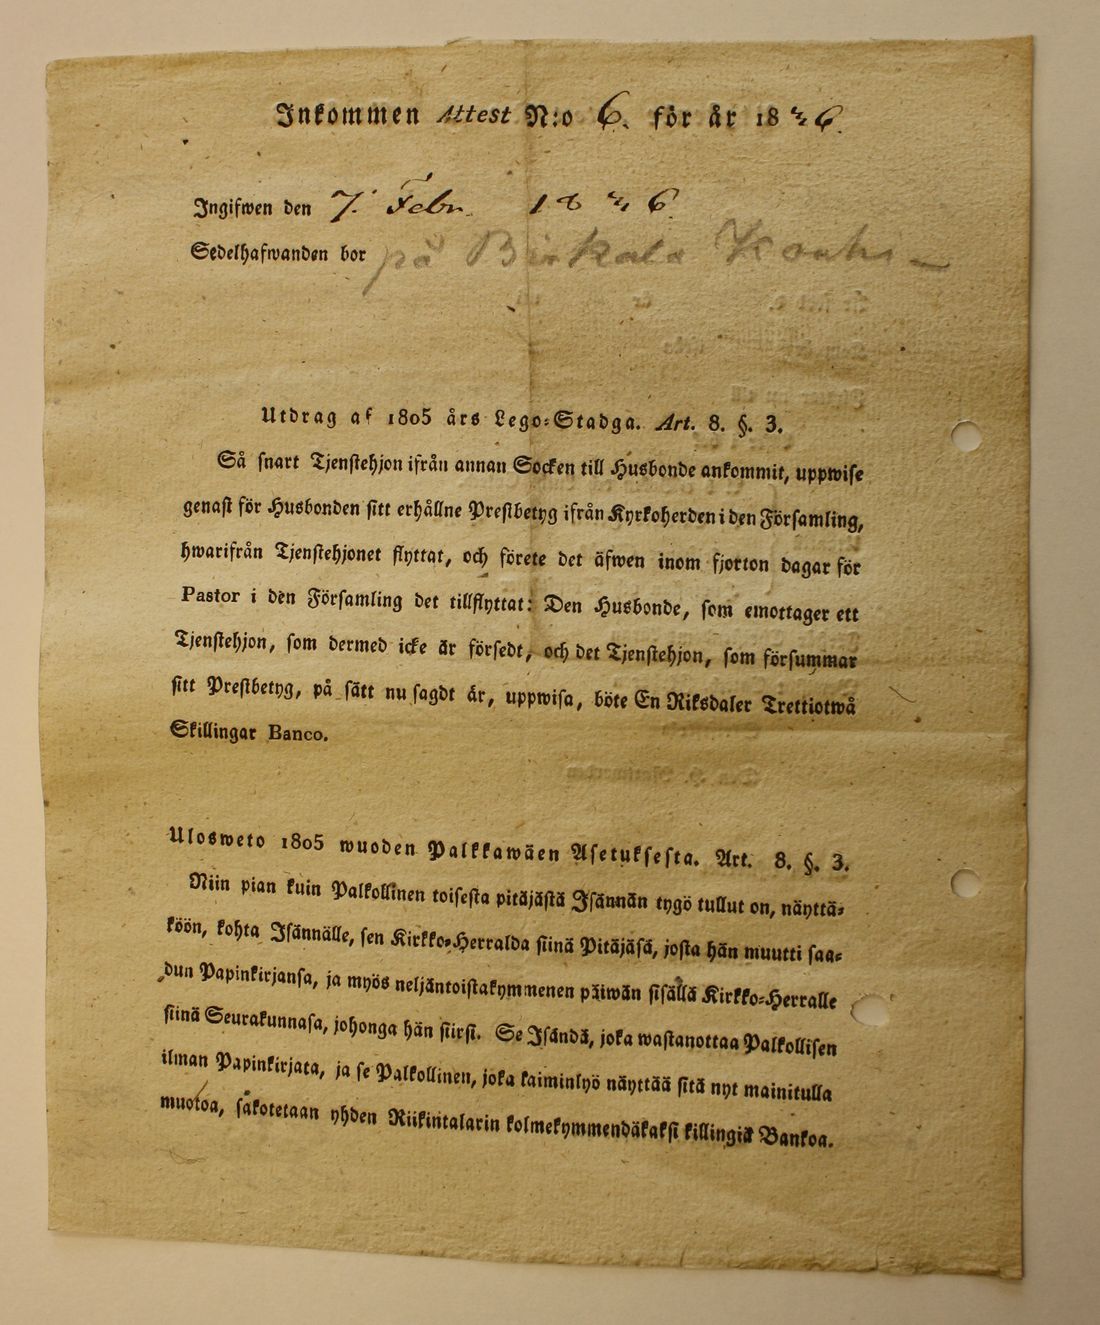 Inkommen Attest N:o 6. för år 1846.
Ingifwen den 7. Febr. 1846.
Sedelhafwanden bor på Birkala
Utdrag af 1805 års Lego-Stadga. Art. 8. §. 3.
Så snart Tjenstehjon ifrån annan Socken till Husbonde ankommit, uppwise
genast för Husbonden sitt erhållne Prestbetyg ifrån Kyrkoherden i den Församling,
hwarifrån Tjenstehjonet flyttat, och förete det äfwen inom fjorton dagar för
Pastor i den Församling det tillflyttat: Den Husbonde, som emottager ett
Tjenstehjon, som dermed icke är försedt, och det Tjenstehjon, som försummar
sitt Prestbetyg, på sätt nu sagdt är, uppwisa, böte En Riksdaler Trettiotwå
Skillingar Banco.
Ulosweto 1805 wuoden Palkkawäen Asetuksesta. Art. 8. §. 3.
Niin pian kuin Palkollinen toisesta pitäjästä Isännän tygö tullut on, näyttä-
köön, kohta Isännälle, sen Kirkko-Herralda siinä Pitäjäsä, josta hän muutti saa-
dun Papinkirjansa, ja myös neljäntoistakymmenen päiwän sisällä Kirkko-Herralle
siinä Seurakunnasa, johonga hän siirsi. Se Isändä, joka wastanottaa Palkollisen
ilman Papinkirjata, ja se Palkollinen, joka kaiminlyö näyttää sitä nyt mainitulla
muotoa, sakotetaan yhden Riikintalarin kolmekymmendäkaksi killingiä Bankoa.